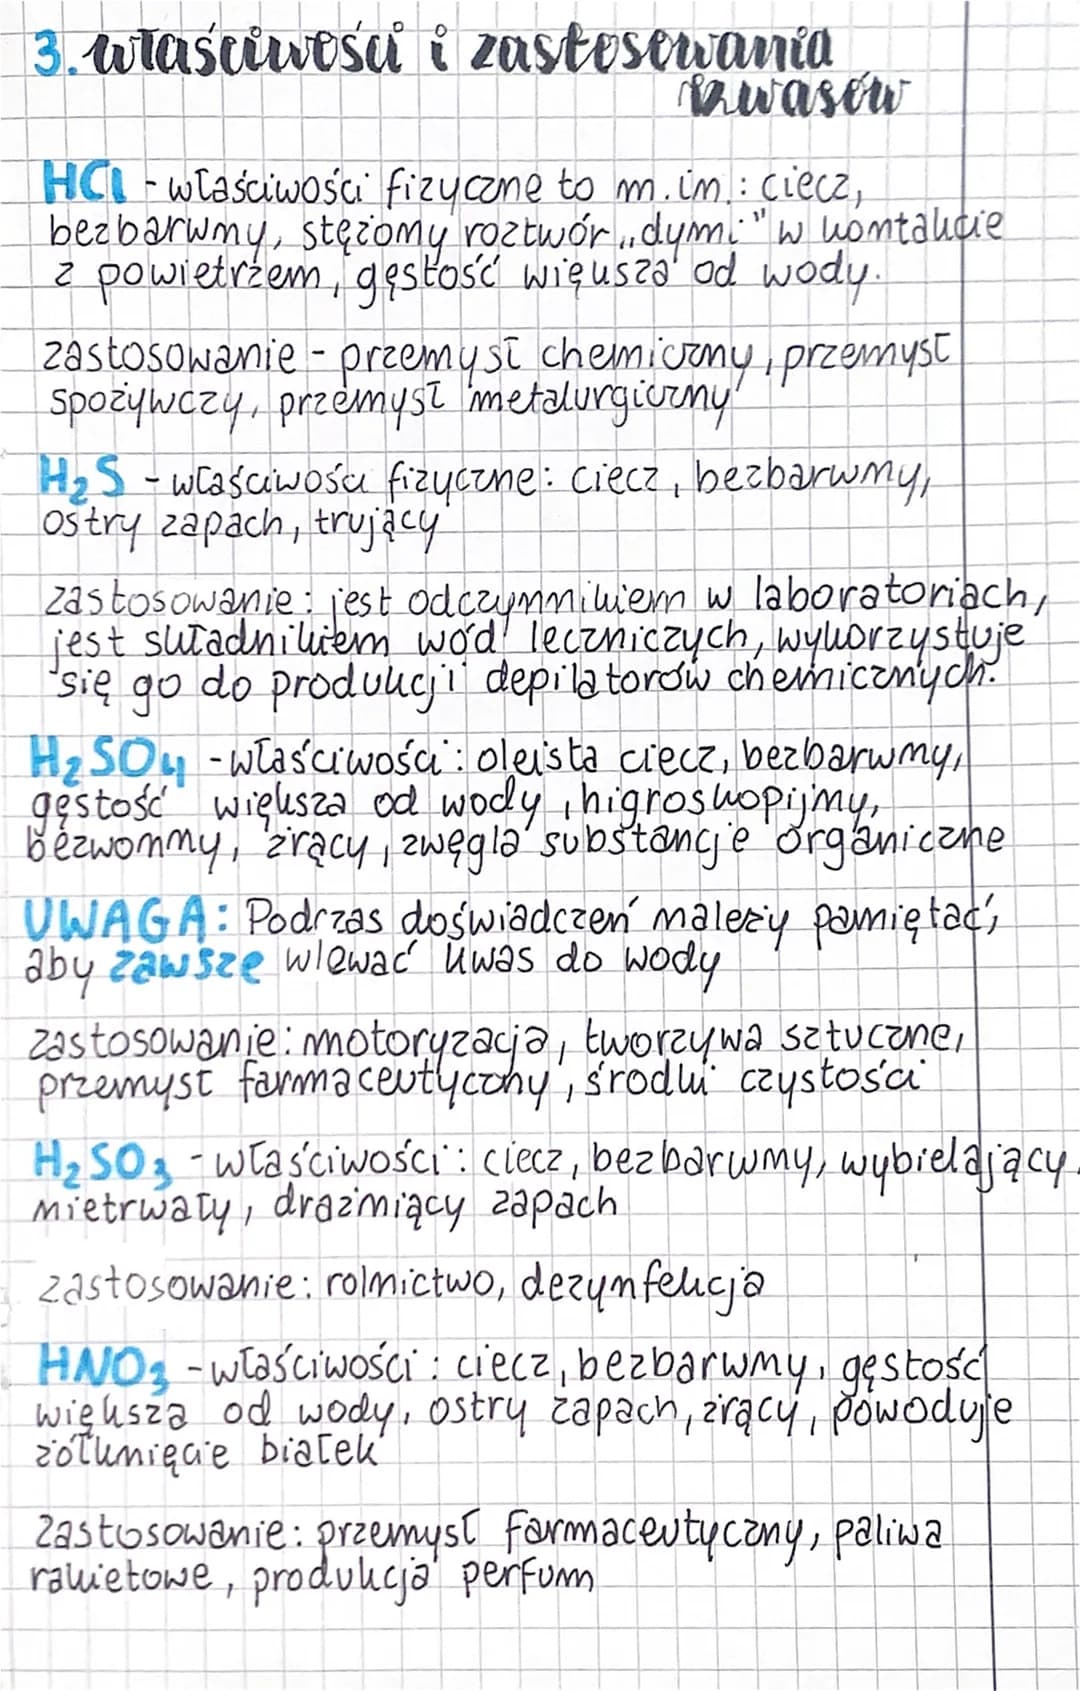 3. właściwości i zastosowania
kwasów
HCl - właściwości fizyczne to m.in.: ciecz,
bezbarwny, stężony roztwór „dymi" w kontakcie
z powietrzem, gęstość większa od wody.
zastosowanie - przemysł chemiczny, przemysł
spożywczy, przemysł metalurgiczny
H₂S - właściwości fizyczne: ciecz, bezbarwny,
ostry zapach, trujący
zastosowanie: jest odczynnikiem w laboratoriach,
jest składnikiem wód leczniczych, wykorzystuje
się go do produkcji depilatorów chemicznych.
H₂SO₄ - właściwości: oleista ciecz, bezbarwny,
gęstość większa od wody, higroskopijny,
bezwonny, żrący, zwęgla substancje organiczne
UWAGA: Podrzas doświadczeń należy pamiętać,
aby zawsze wlewać kwas do wody
zastosowanie: motoryzacja, tworzywa sztuczne,
przemysł farmaceutyczny, środki czystości
H₂SO₃ - właściwości: ciecz, bezbarwny, wybielający.
nietrwały, drażniący zapach
zastosowanie: rolnictwo, dezynfekcja
HNO₃ - właściwości: ciecz, bezbarwny, gęstość
większa od wody, ostry zapach, żrący, powoduje
żółknięcie białek
zastosowanie: przemysł farmaceutyczny, paliwa
rakietowe, produkcja perfum